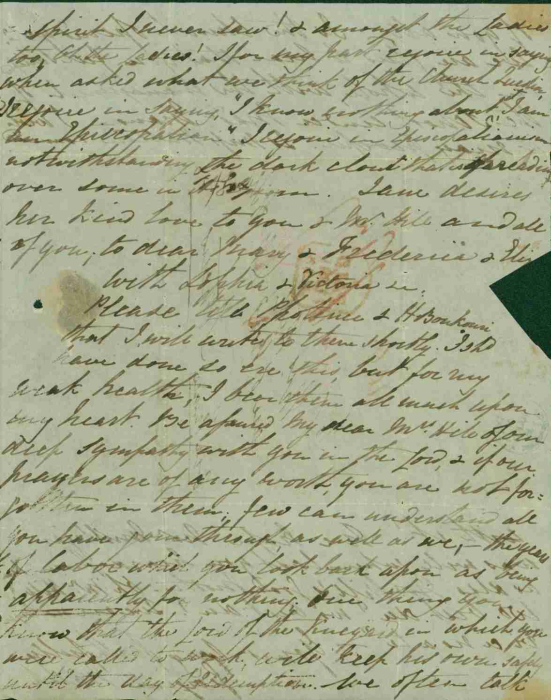 spirit I never saw! & amongst the Ladies
too, Oh the Ladies! I for my part rejoice in saying
when asked what we think of the Church Question
I rejoice in saying, "I know nothing about, I am
an Episcopalian" I rejoice in Episcopalianism
notwithstanding the dark cloud that is spreading
over some in. Jane desires
her kind love to you & Mr. Hill and all
of you, to dear Mary & Frederica & Eliz
with Sophia & Victoria &c.
Please tell & H
that I will write to them shortly. I shd
have done so ere this but for my
weak health, I bear them all much upon
my heart Be assured my dear Mrs Hill of our
deep sympathy with you in the Lord, & if our
prayers are of any worth, you are not for-
gotten in them; few can understand all
you have gone through as well as we, – the years
of labor which you look back upon as being
apparently for nothing one thing you
know that the Lord of the Vineyard in which you
were called to work, will keep his own safely
until the day of redemption. We often talk